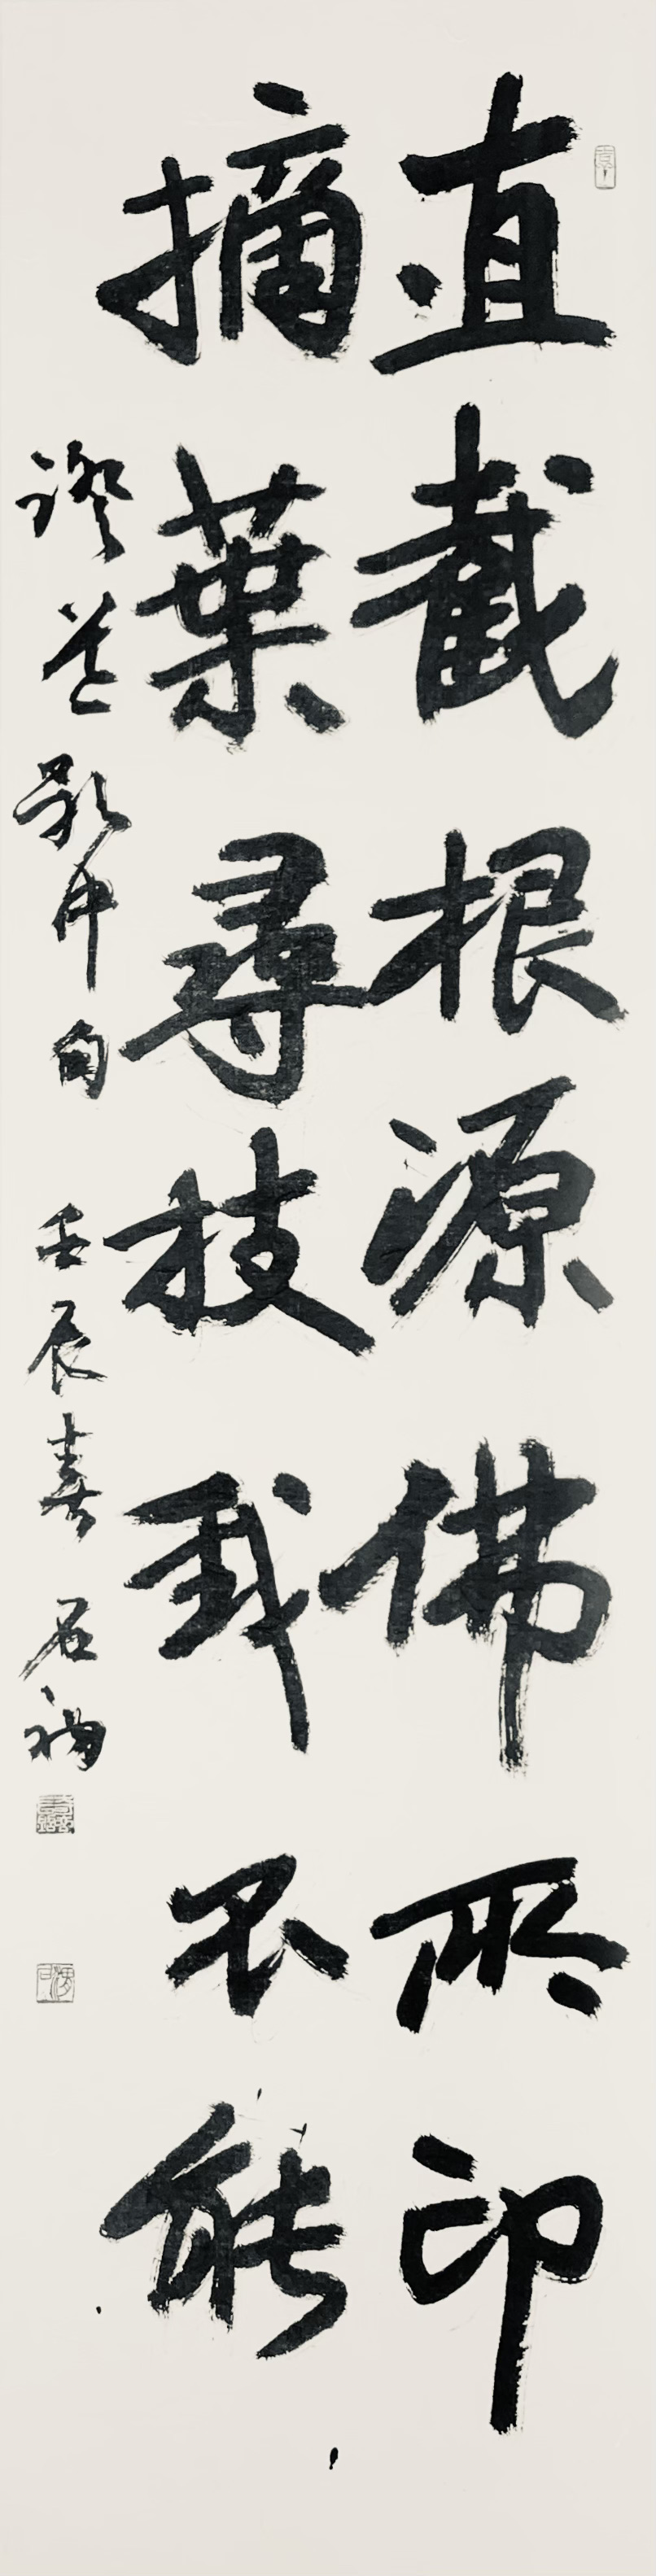 直截根源佛所印
摘葉尋技我不能
證道歌中句 壬辰春 石